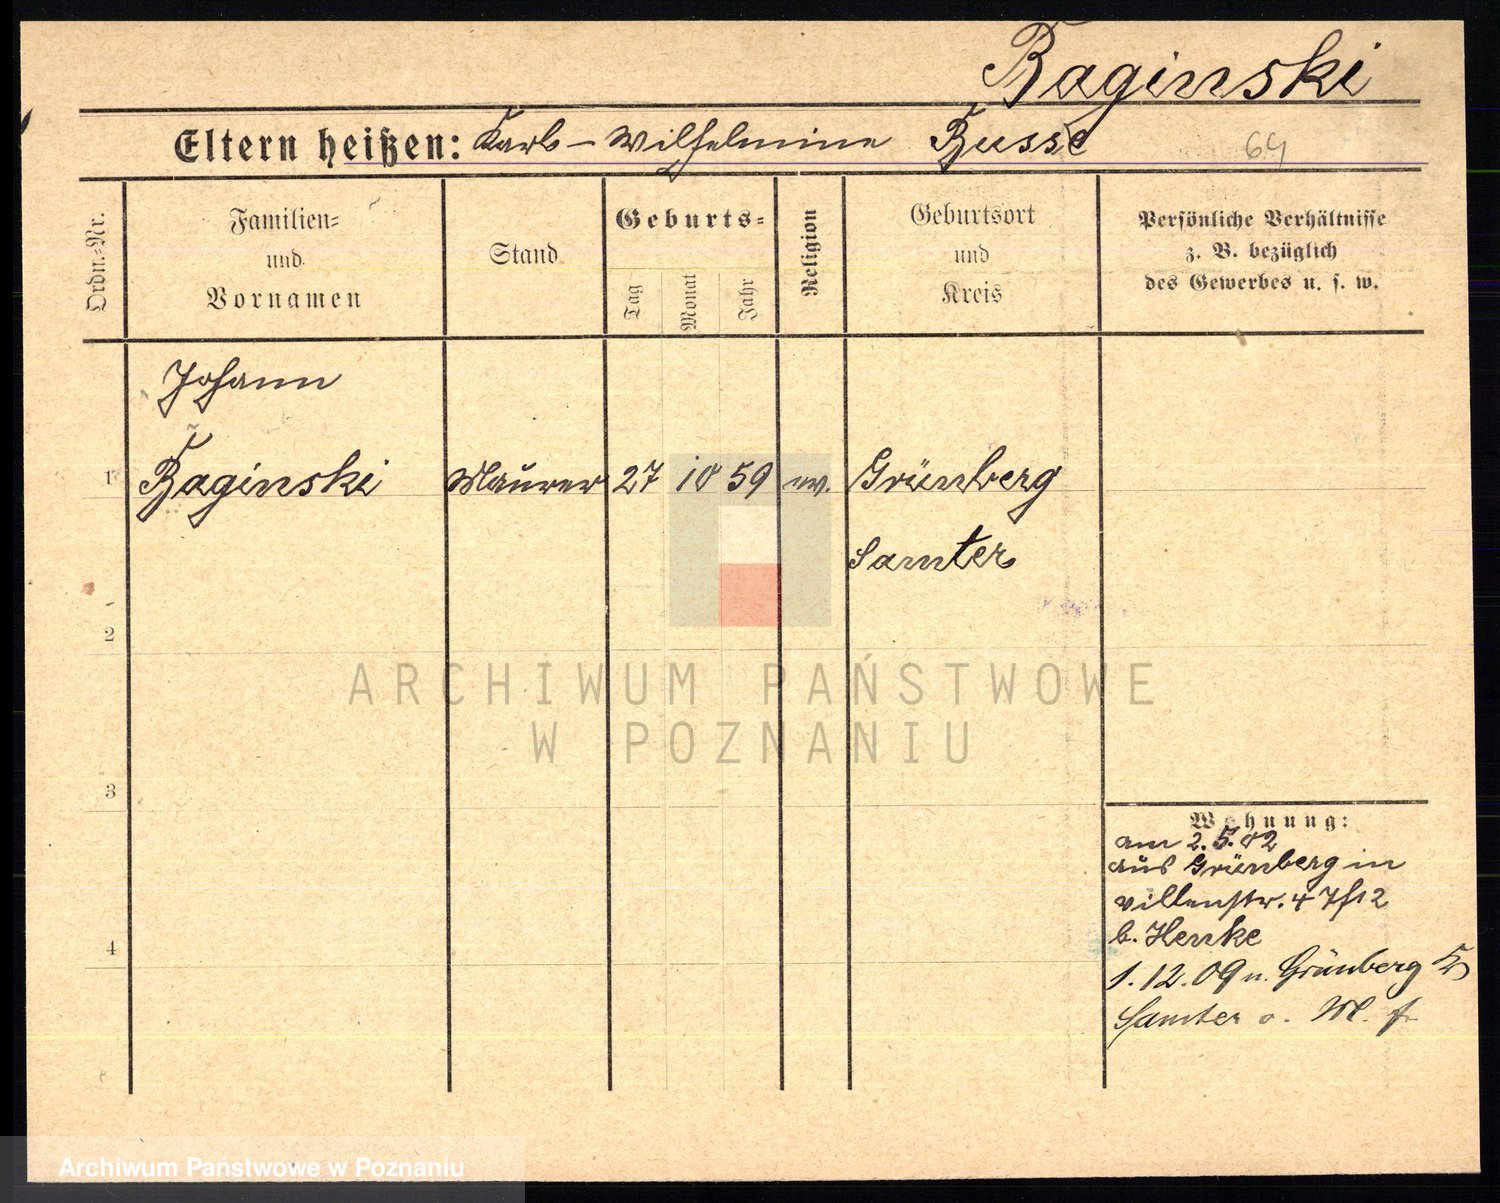 Baginski
Eltern heißen: Karl – Wilhelmine Busse
64
Ordn.-Nr.
Familien-
und
Vornamen
Stand
Geburts-
Tag
Monat
Jahr
Religion
Geburtsort
und
Kreis
Persönliche Verhältnisse
z. B. bezüglich
des Gewerbes u. s. w.
Johann
1 Baginski Maurer 27 10 59 ev. Grünberg
Samter
2
3
4
Wohnung:
am 2.5.02
aus Grünberg in
Villenstr. 4
b. Henke
1.12.09 n. Grünberg Kr
Samter o. M.
ARCHIWUM PAŃSTWOWE
W POZNANIU
Archiwum Państwowe w Poznaniu